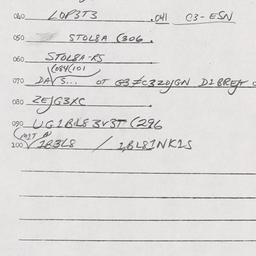 040 LOP3T3 .041 C3-ESN
050 STOL8A (306.
060 STOL8A-RS
(084(101
070 DAVS... OT G3≠C3ZOJGN D1BREJT
080 ZEJG3XC
090 UG1BL8 3V3T (296
100 1B3L8 / 1,BL81NK1S